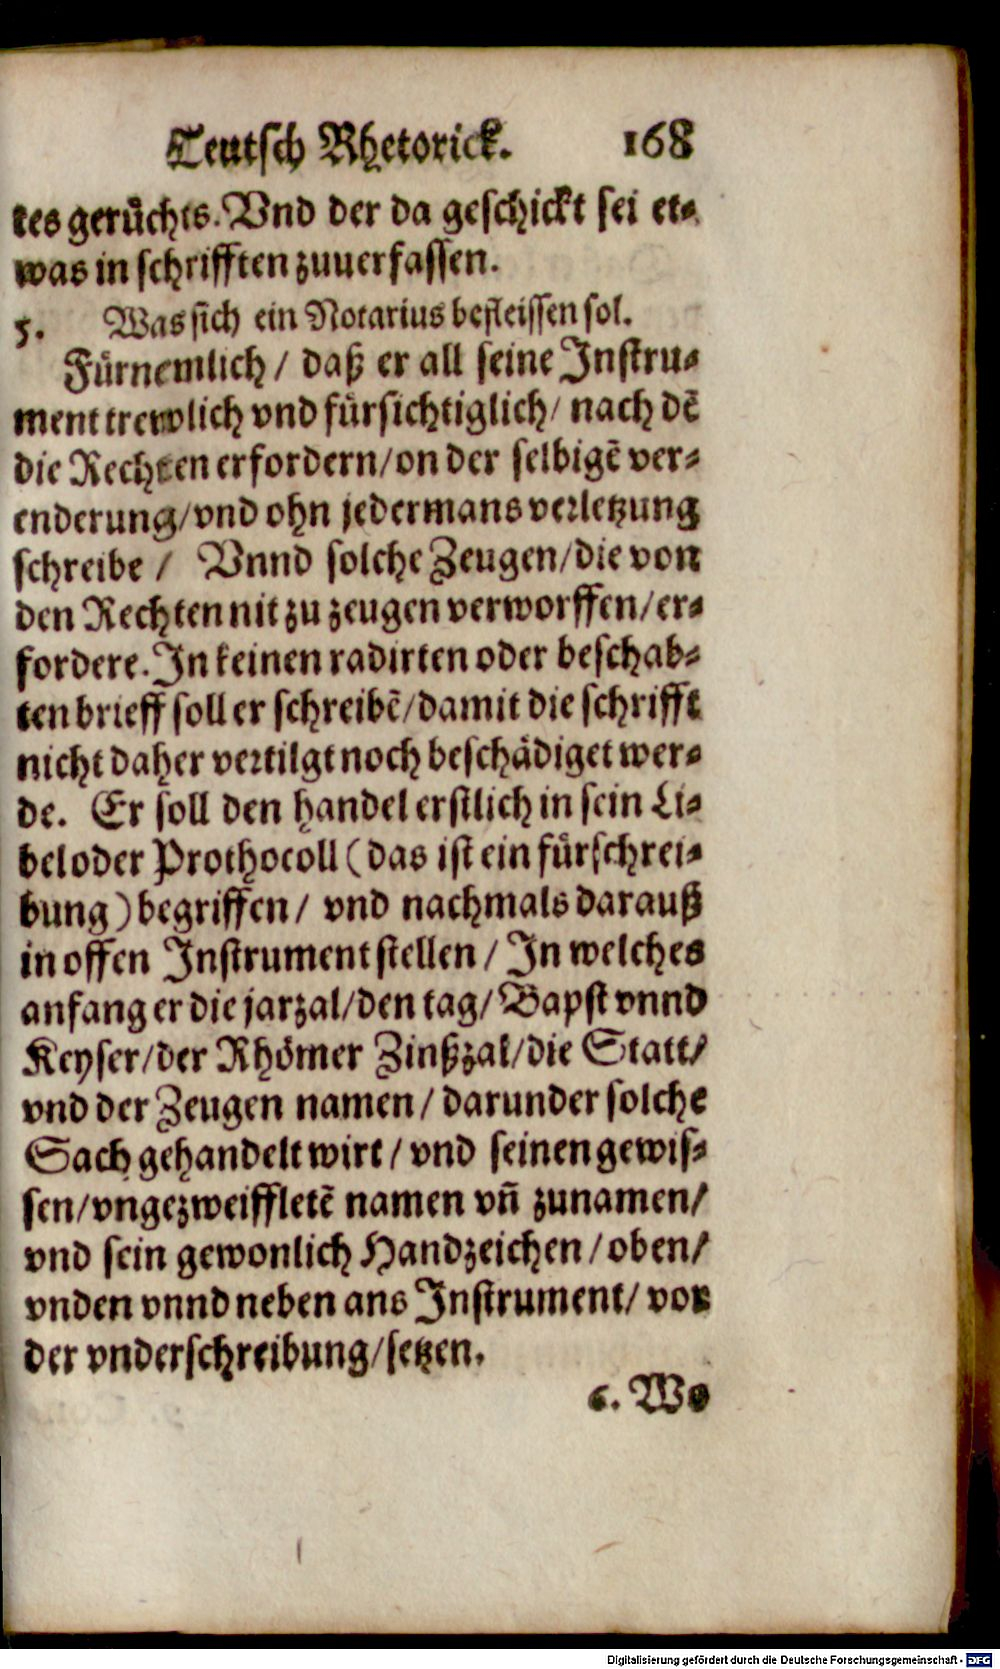 Teutsch Rhetorick. 168
tes gerůchts. Vnd der da geschickt sei et-
was in schrifften zuuerfassen.
5. Was sich ein Notarius befleissen sol.
Fürnemlich / daß er all seine Instru-
ment trewlich vnd fürsichtiglich / nach dē
die Rechten erfordern / on der selbigē ver-
enderung / vnd ohn jedermans verletzung
schreibe / Vnnd solche Zeugen / die von
den Rechten nit zu zeugen verworffen / er-
fordere. In keinen radirten oder beschab-
ten brieff soll er schreibē / damit die schrifft
nicht daher vertilgt noch beschädiget wer-
de. Er soll den handel erstlich in sein Li-
bel oder Prothocoll (das ist ein fürschrei-
bung) begriffen / vnd nachmals darauß
in offen Instrument stellen / In welches
anfang er die jarzal / den tag / Bapst vnnd
Keyser / der Rhömer Zinßzal / die Statt /
vnd der Zeugen namen / darunder solche
Sach gehandelt wirt / vnd seinen gewis-
sen / vngezweiffletē namen vñ zunamen /
vnd sein gewonlich Handzeichen / oben /
vnden vnnd neben ans Instrument / vor
der vnderschreibung / setzen.
6. Wo
Digitalisierung gefördert durch die Deutsche Forschungsgemeinschaft - DFG